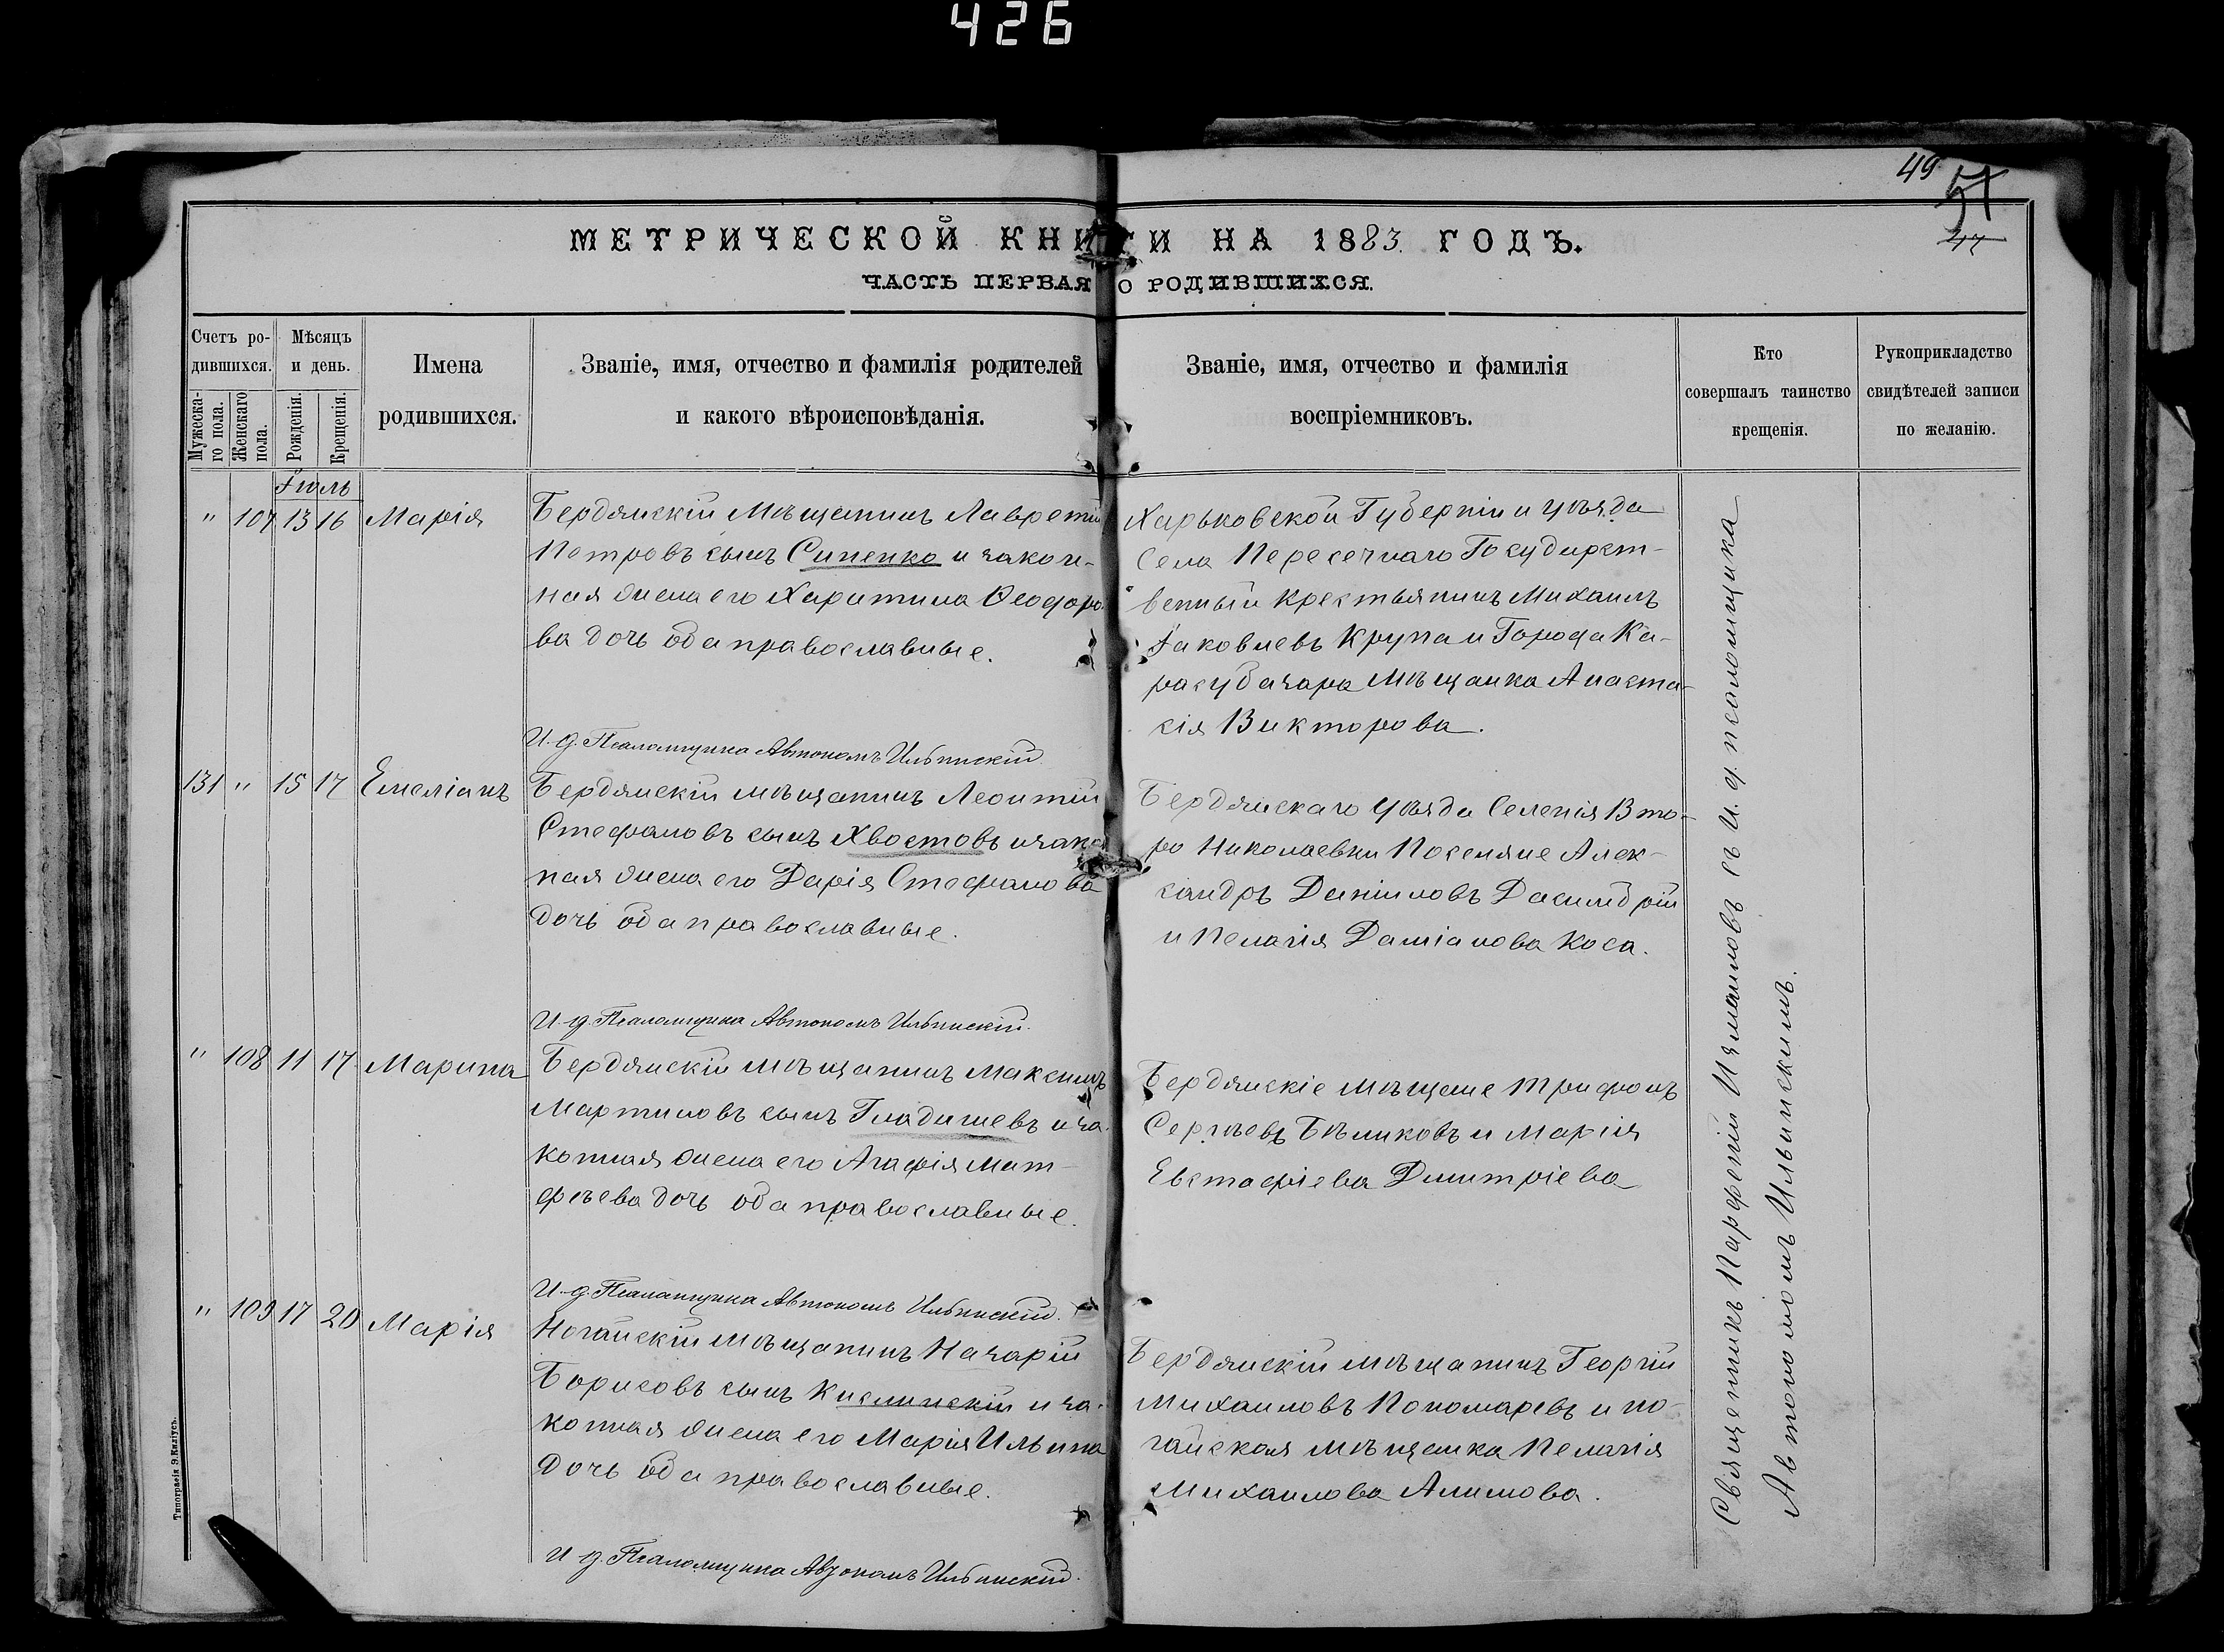 426
49
51
47
МЕТРИЧЕСКОЙ КНИГИ НА 1883 ГОДЪ.
ЧАСТЬ ПЕРВАЯ О РОДИВШИХСЯ.
Счетъ ро-
дившихся.
Мужеска-
го пола.
Женскаго
пола.
Мѣсяцъ
и день.
Рожденія.
Крещенія.
Имена
родившихся.
Званіе, имя, отчество и фамилія родителей
и какого вѣроисповѣданія.
Званіе, имя, отчество и фамилія
воспріемниковъ.
Кто
совершалъ таинство
крещенія.
Рукоприкладство
свидѣтелей записи
по желанію.
Іюль
" 107 13 16 Марія
Бердянскій Мѣщанинъ Лавретій
Петровъ сынъ Синенко и закон-
ная жена его Харитина Ѳеодоро
ва дочь оба православные.
Харьковской Губерніи и уѣзда
Села Пересечнаго Государст-
венный крестьянинъ Михаилъ
Іаковлевъ Крупа и Города Ка-
расубазара Мѣщанка Анаста-
сія Викторова.
И. д. Псаломщика Автономъ Ильинскій
131 " 15 17 Емеліанъ
Бердянскій мѣщанинъ Леонтій
Стефановъ сынъ Хвостовъ и зако
ная жена его Дарія Стефанова
дочь оба православные.
Бердянскаго уѣзда Селенія Вто-
ро Николаевки Поселяне Алек-
сандръ Даніиловъ
и Пелагія Даміанова Коса.
И. д. Псаломщика Автономъ Ильинскій.
" 108 11 17 Марина
Бердянскій мѣщанинъ Максимъ
Мартиновъ сынъ Гладишевъ и за
конная жена его Агафія Мат-
фѣева дочь оба православные.
Бердянскіе мѣщане Трифонъ
Сергѣевъ Бѣликовъ и Марія
Евстафіева Димитріева
И. д. Псаломщика Автономъ Ильинскій.
" 109 17 20 Марія
Ногайскій мѣщанинъ Назарій
Борисовъ сынъ Кислинскій и за-
конная жена его Марія Ильина
дочь оба православные.
Бердянскій мѣщанинъ Георгій
Михаиловъ Пономаревъ и но-
гайская мѣщанка Пелагія
Михаилова Алимова.
И д. Псаломщика Автономъ Ильинскій.
Священникъ Парфеній Измаиловъ съ И. д. псаломщика
Автономомъ Ильинскимъ.
Типографія Э. Килусъ.